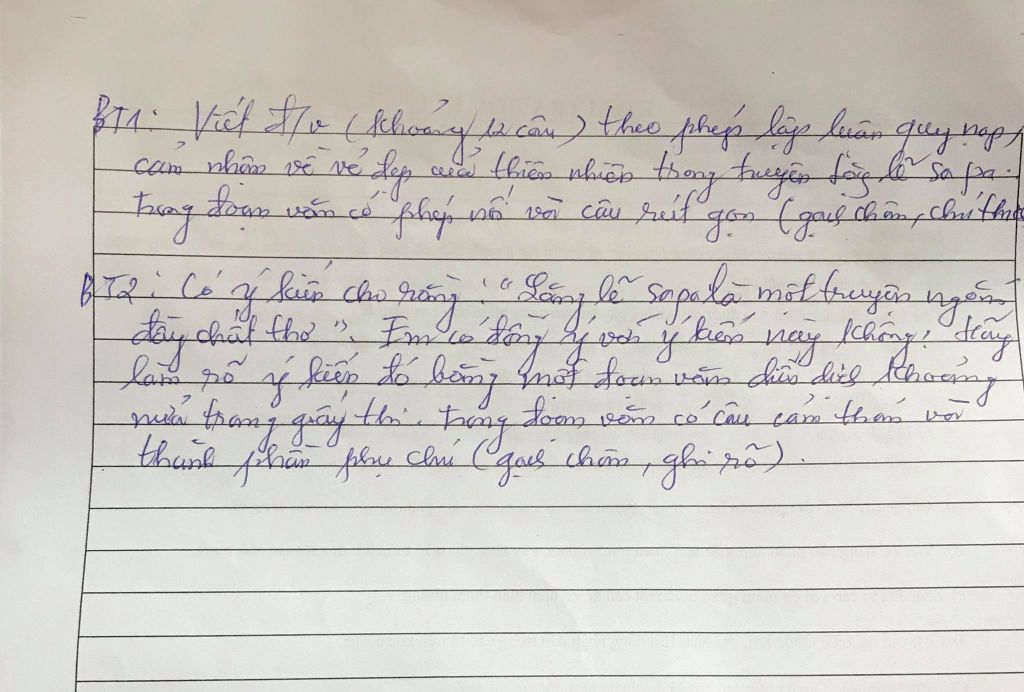 BT1: Viết đ/v (khoảng 12 câu) theo phép lập luận quy nạp,
cảm nhận về vẻ đẹp của thiên nhiên trong truyện lặng lẽ Sa pa.
trong đoạn văn có phép nối và câu rút gọn (gạch chân, chú thích
BT2: Có ý kiến cho rằng: "Lặng lẽ sapa là một truyện ngắn
đầy chất thơ". Em có đồng ý với ý kiến này không? Hãy
làm rõ ý kiến đó bằng một đoạn văn diễn dịch khoảng
nửa trang giấy thi. trong đoạn văn có câu cảm thán và
thành phần phụ chú (gạch chân, ghi rõ).